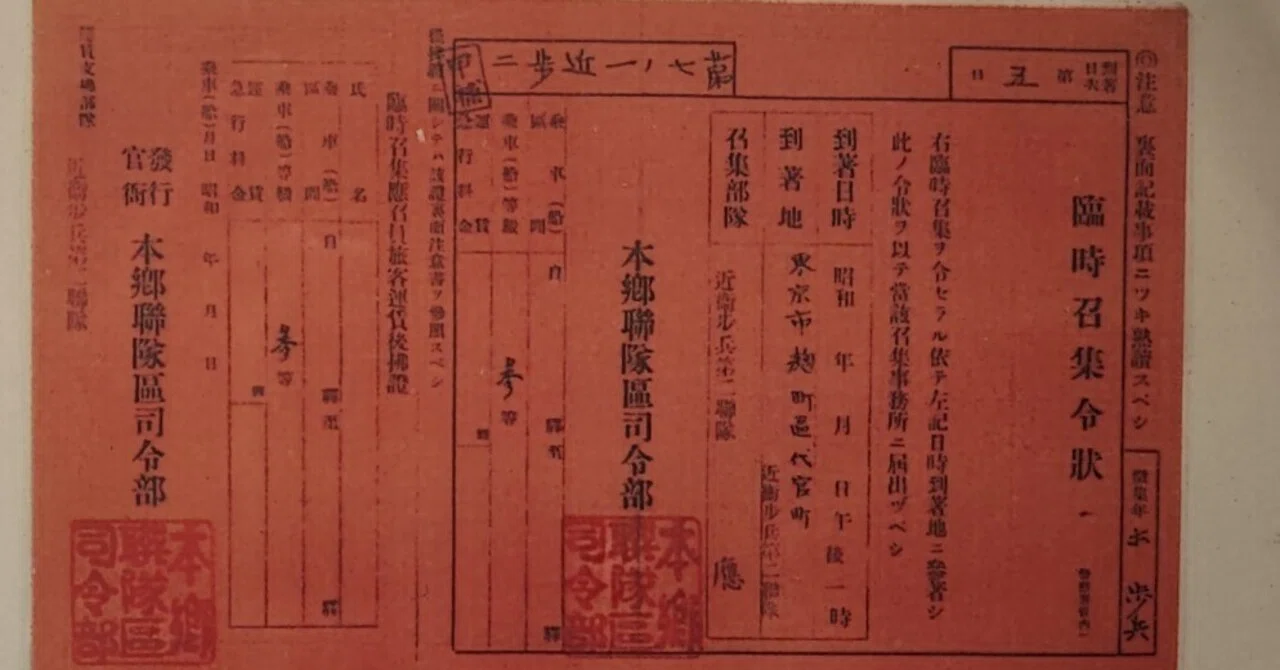 注意 裏面記載事項ニツキ熟讀スベシ
徴集年
歩兵
到著
日次
第
五
日
臨時召集令狀
右臨時召集ヲ令セラル依テ左記日時到著地ニ參著シ
此ノ令狀ヲ以テ當該召集事務所ニ屆出ヅベシ
到著日時
昭和 年 月 日午後一時
到著地
東京市麹町區代官町
近衞步兵第二聯隊
召集部隊
近衞步兵第二聯隊
應
本鄉聯隊區司令部
本鄉
聯隊區
司令部
第七ノ一近歩二
乘車(船)
區間
自
驛
至
驛
乘車(船)等級
參等
運賃
急行料金
臨時召集應召員旅客運賃後拂證
氏名
乘車(船)
區間
自
驛至
驛
乘車(船)等級
參等
運賃
急行料金
乘車(船)月日 昭和 年 月 日
發行
官衙
本鄉聯隊區司令部
本鄉
聯隊區
司令部
近衞步兵第二聯隊